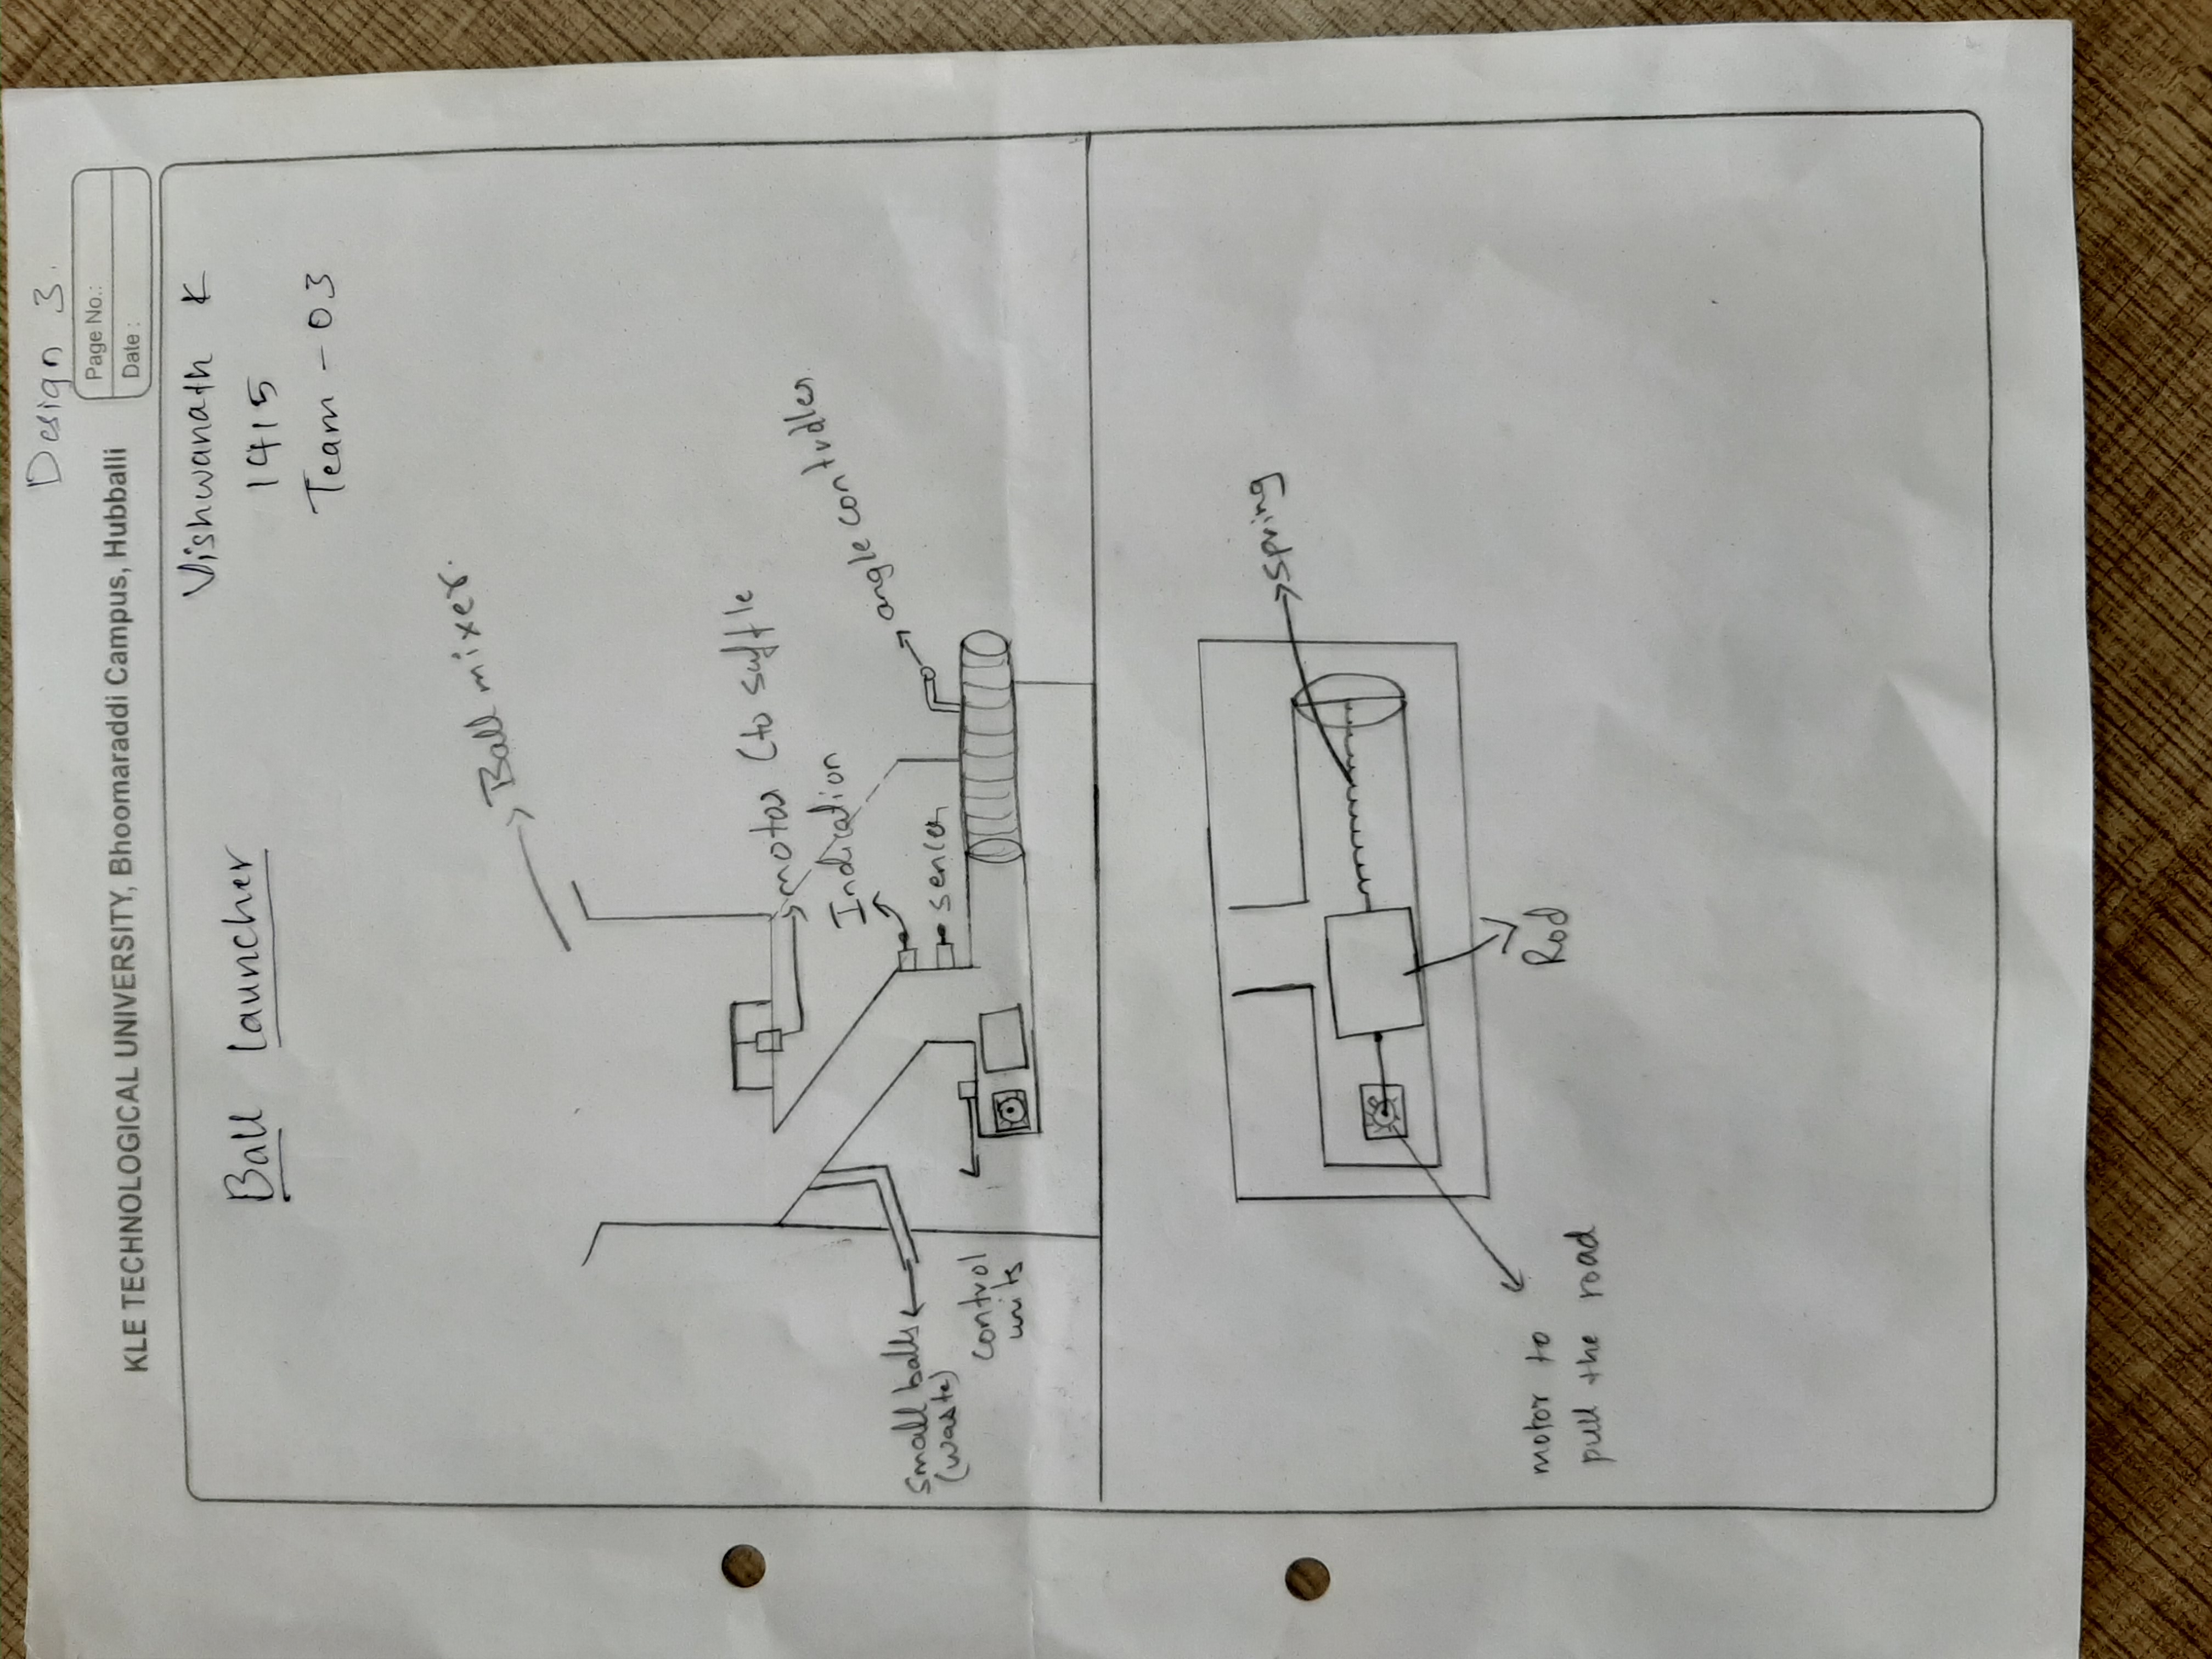 Design 3.
KLE TECHNOLOGICAL UNIVERSITY, Bhoomaraddi Campus, Hubballi
Page No.:
Date :
Vishwanath K
1415
Team - 03
Ball launcher
Ball mixer.
motor (to suffle
Indication
angle controller
small balls
(waste)
sencer
control
units
spring
motor to
pull the road
Rod